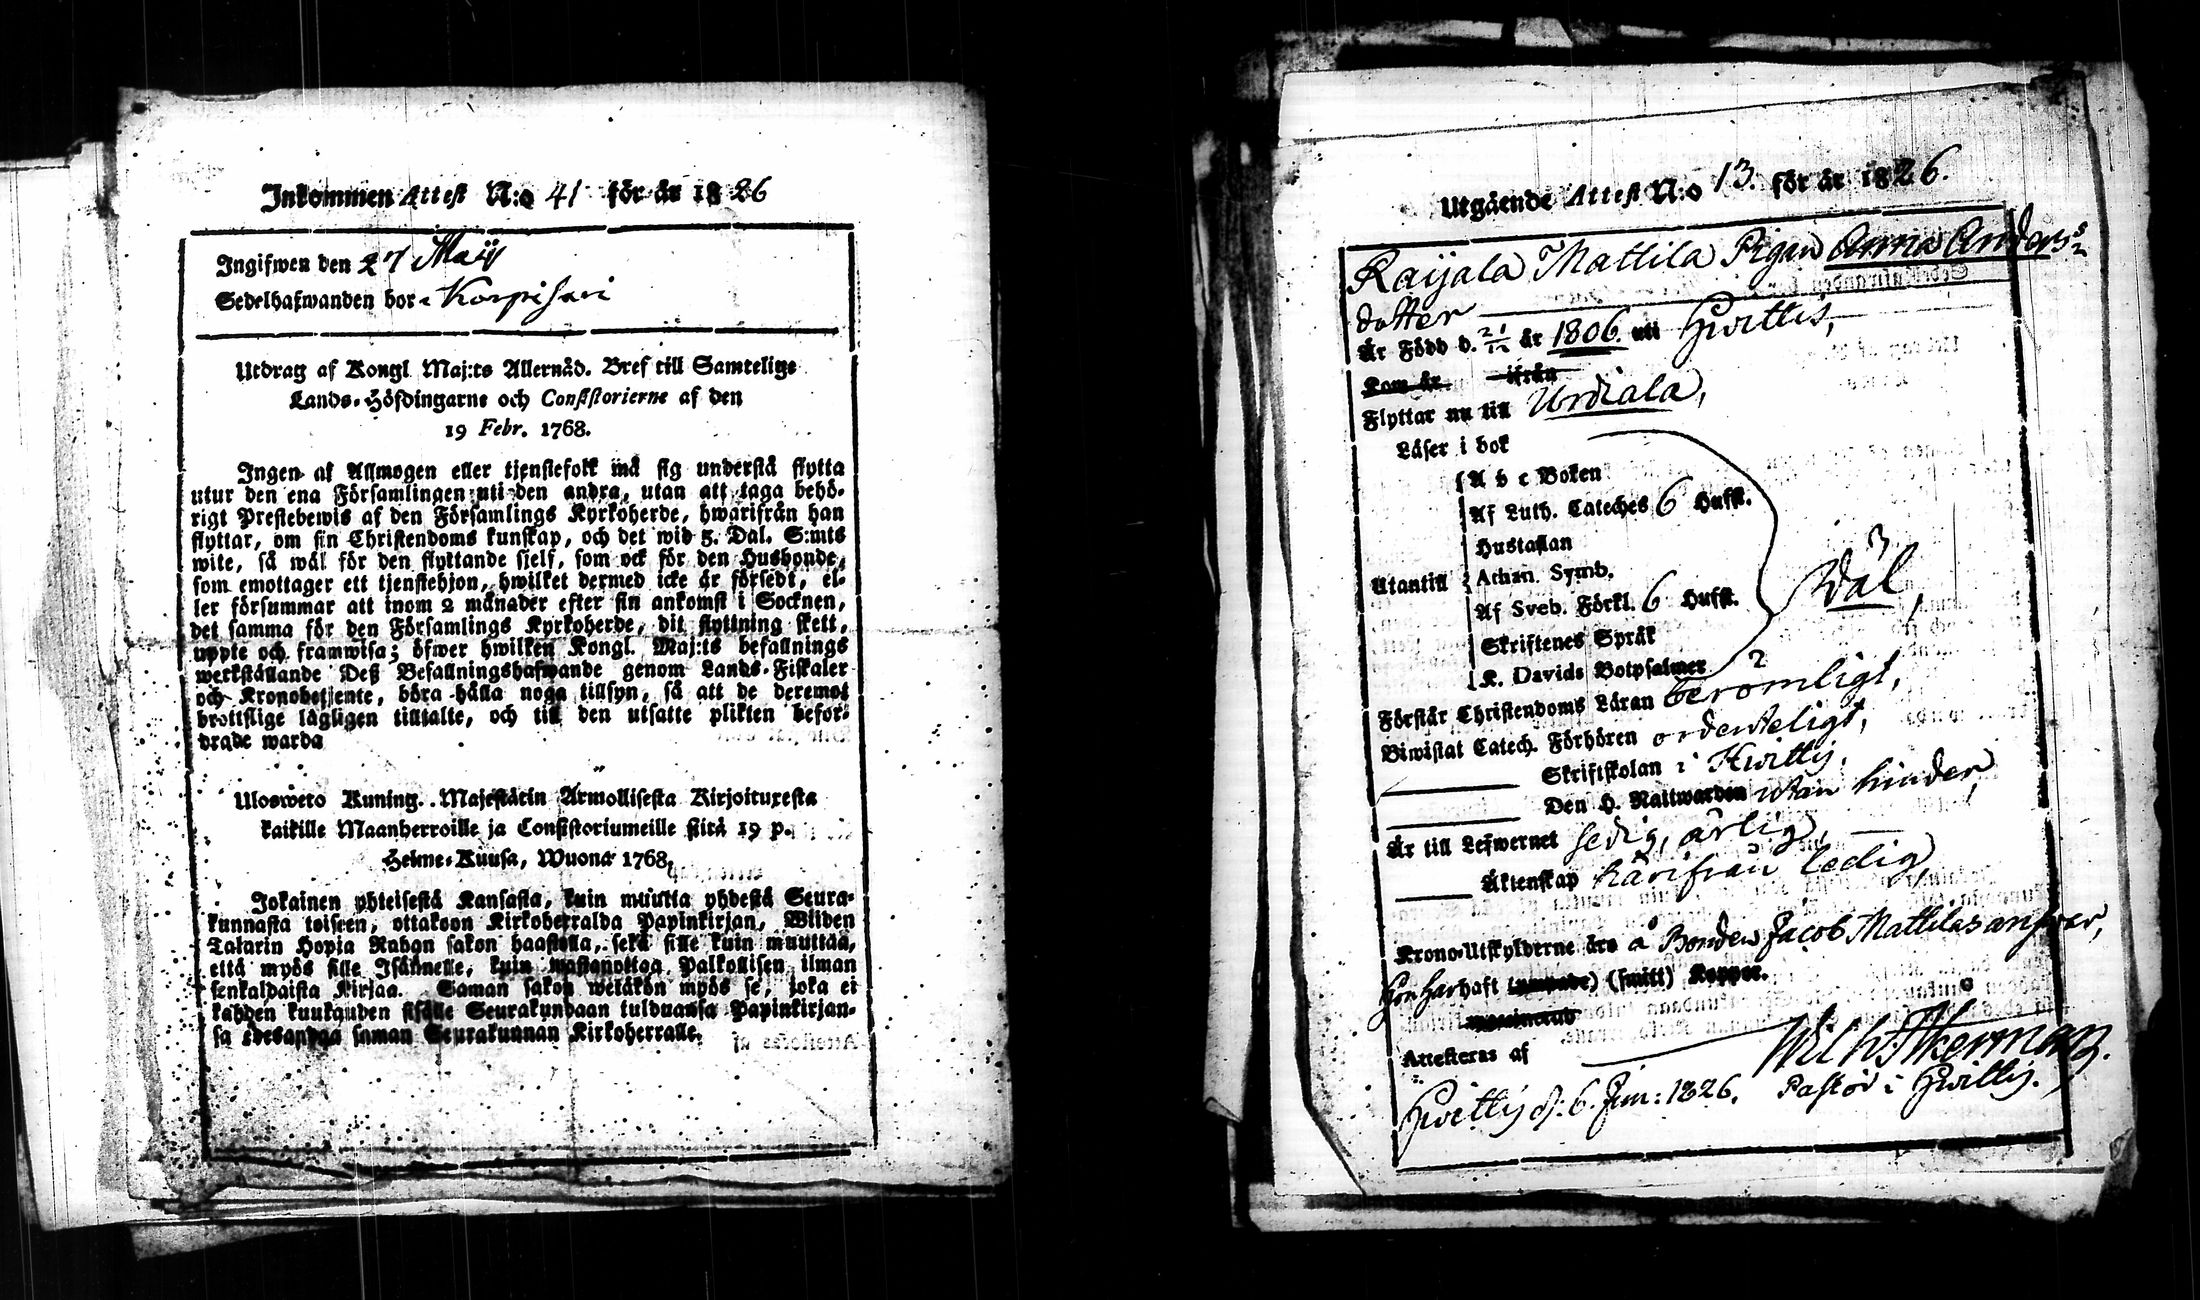 Inkommen Attest N:o 41 för år 1826
Ingifwen den 27 Maij
Sedelhafwanden bor i Korpisari
Utdrag af Kongl. Maj:ts Allernåd. Bref till Samtelige
Lands-Höfdingarne och Consistorierne af den
19 Febr. 1768.
Ingen af Allmogen eller tjenstefolk må sig understå flytta
utur den ena Församlingen uti den andra, utan att taga behö-
rigt Prestebewis af den Församlings Kyrkoherde, hwarifrån han
flyttar, om sin Christendoms kunskap, och det wid 5. Dal. S:mts
wite, så wäl för den flyttande sjelf, som ock för den Husbonde,
som emottager ett tjenstehjon, hwilket dermed icke är försedt, el-
ler försummar att inom 2 månader efter sin ankomst i Socknen,
det samma för den Församlings Kyrkoherde, dit flyttning skett,
uppte och framwisa; öfwer hwilken Kongl. Maj:ts befallnings
werkställande Deß Befallningshafwande genom Lands-Fiskaler
och Kronobetjente, böra hålla noga tillsyn, så att de deremot
brottslige lagligen tilltalte, och till den utsatte plikten befor-
drade warda
Ulosweto Kuning. Majestätin Armollisesta Kirjoituxesta
kaikille Maanherroille ja Consistoriumeille siitä 19 p.
Helme-Kuusa, Wuona 1768.
Jokainen yhteisestä Kansasta, kuin muutta yhdestä Seura-
kunnasta toiseen, ottakoon Kirkoherralda Papinkirjan, Wiiden
Talarin Hopia Rahan sakon haastolla, sekä sille kuin muuttaa,
että myös sille Isännelle, kuin wastanottaa Palkollisen ilman
senkaldaista Kirjaa. Saman sakon wetäkön myös se, joka ei
kahden kuukauden sisälle Seurakundaan tulduansa Papinkirjan-
sa edesandaa saman Seurakunnan Kirkoherralle.
Utgående Attest N:o 13. för år 1826.
Raijala Mattila Pigan Anna Anders
dotter
Är Född d. 21/12 år 1806. uti Hvittis,
Kom år ifrån
Flyttar nu till Urdiala,
Läser i bok
A b c Boken
Af Luth. Cateches 6 Hufst.
Hustaflan
Utantill Athan. Symb.
Af Sveb. Förkl. 6 Hufst.
Wäl,
Skriftenes Språk
K. Davids Botpsalmer
Förstår Christendoms Läran berömligt,
Biwistat Catech. Förhören ordenteligt,
Skriftskolan i Hvittis.
Den H. Nattwarden utan hinder,
Är till Lefwernet sedig, ärlig,
Äktenskap härifrån ledig,
Krono-Utskylderne äro å Bonden Jacob Mattilas answar,
Hon har haft (smitt) Koppor.
Attesteras af Wilh. Åkerman.
Hvittis d. 6. Jun: 1826. Pastor i Hvittis.